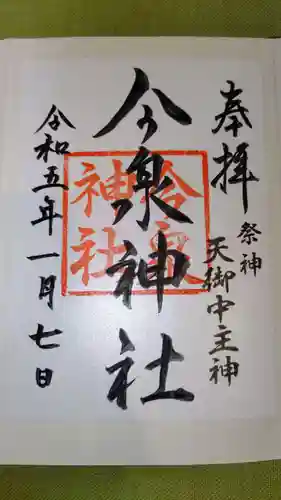 奉拝
祭神
天御中主神
今泉神社
神社
令和五年一月七日